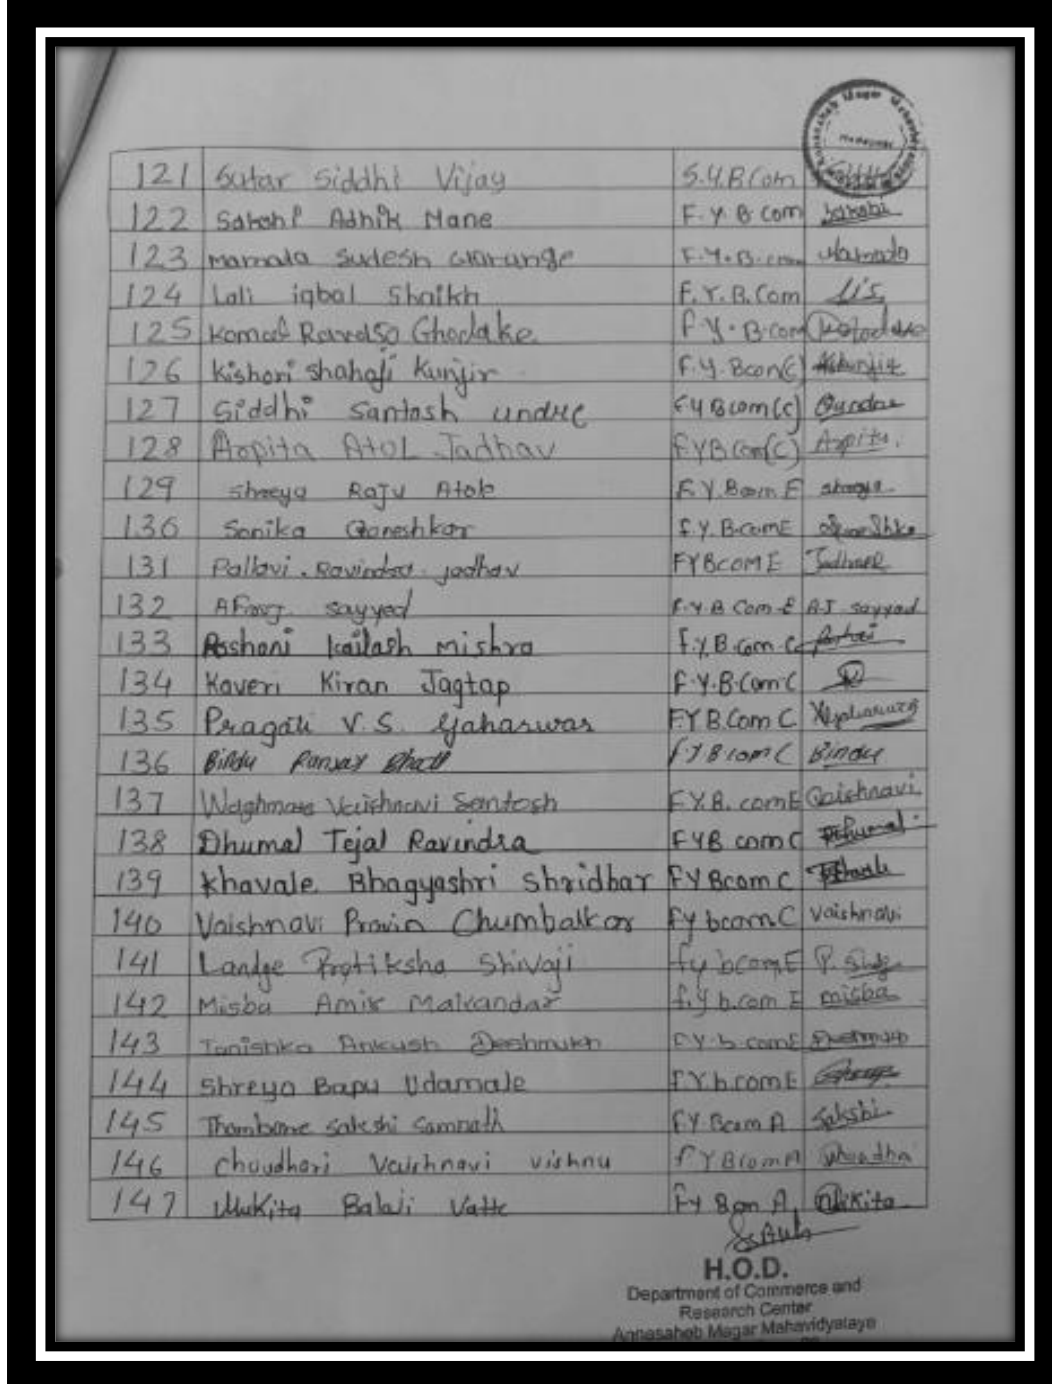 Annasaheb Magar Mahavidyalaya
Hadapsar
121 Sutar Siddhi Vijay S.Y.B.Com
122 Sakshi Adhik Mane F.Y.B com Sakshi
123 Mamata Sudesh F.Y.B.com Mamata
124 Lali iqbal Shaikh F.Y.B.Com
125 Komal Ghodake F.Y.B.com
126 Kishori Shahaji Kunjir F.Y.Bcom(C) Kunjir
127 Siddhi Santosh undre F.Y Bcom(c) Oundre
128 Arpita AtOL Jadhav F.Y B Com(C) Arpita.
129 Shreya Raju Atole F.Y.Bcom E Shreya
130 Sonika Ganeshkar F.Y.B.comE
131 Pallavi. Ravindra Jadhav FYBcomE
132 sayyed F.Y.B Com-E A.J sayyed
133 Kailash mishra F.Y.B.com-C
134 Kaveri Kiran Jagtap F.Y.B.Com C
135 Pragati V.S. Gaharwar F.Y B.Com C
136 Bindu F.Y B com C Bindu
137 Waghmare Vaishnavi Santosh F.Y.B. comE Vaishnavi
138 Dhumal Tejal Ravindra F Y B com C Dhumal
139 Khavale Bhagyashri Shridhar F Y Bcom C
140 Vaishnavi Pravin Chumbalkar Fy bcom.C Vaishnavi
141 Landge Pratiksha Shivaji fy bcomE
142 Misba Amir Malkandar f.y b.com E misba
143 Tanishka Ankush Deshmukh F.Y.b.comE Deshmukh
144 Shreya Bapu Udamale F.Y.b.comE
145 Thombare Sakshi Samnath F.Y.Bcom A Sakshi
146 Choudhari Vaishnavi vishnu F Y Bcom A
147 Balaji Vatte Fy Bom A
H.O.D.
Department of Commerce and
Research Center
Annasaheb Magar Mahavidyalaya